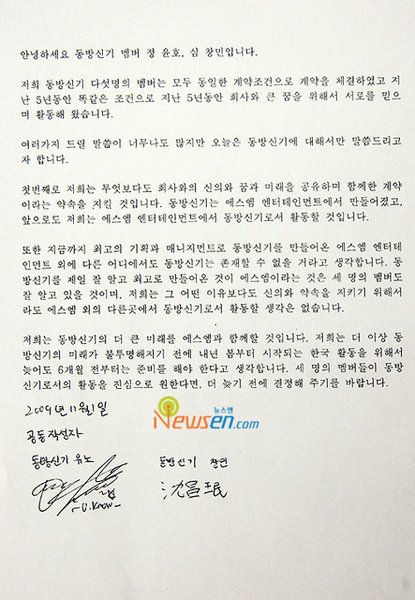 안녕하세요 동방신기 멤버 정 윤호, 심 창민입니다.
저희 동방신기 다섯명의 멤버는 모두 동일한 계약조건으로 계약을 체결하였고 지
난 5년동안 똑같은 조건으로 지난 5년동안 회사와 큰 꿈을 위해서 서로를 믿으
며 활동해 왔습니다.
여러가지 드릴 말씀이 너무나도 많지만 오늘은 동방신기에 대해서만 말씀드리고
자 합니다.
첫번째로 저희는 무엇보다도 회사와의 신의와 꿈과 미래를 공유하며 함께한 계약
이라는 약속을 지킬 것입니다. 동방신기는 에스엠 엔터테인먼트에서 만들어졌고,
앞으로도 저희는 에스엠 엔터테인먼트에서 동방신기로서 활동할 것입니다.
또한 지금까지 최고의 기획과 매니지먼트로 동방신기를 만들어온 에스엠 엔터테
인먼트 외에 다른 어디에서도 동방신기는 존재할 수 없을 거라고 생각합니다. 동
방신기를 제일 잘 알고 최고로 만들어온 것이 에스엠이라는 것은 세 명의 멤버도
잘 알고 있을 것이며, 저희는 그 어떤 이유보다도 신의와 약속을 지키기 위해서
라도 에스엠 외의 다른곳에서 동방신기로서 활동할 생각은 없습니다.
저희는 동방신기의 더 큰 미래를 에스엠과 함께할 것입니다. 저희는 더 이상 동
방신기의 미래가 불투명해지기 전에 내년 봄부터 시작되는 한국 활동을 위해서
늦어도 6개월 전부터는 준비를 해야 한다고 생각합니다. 세 명의 멤버들이 동방
신기로서의 활동을 진심으로 원한다면, 더 늦기 전에 결정해 주기를 바랍니다.
2009년 11월 1일
뉴스엔
Newsen.com
공동작성자
동방신기 유노
동방신기 창민
-U.Know-
沈昌珉